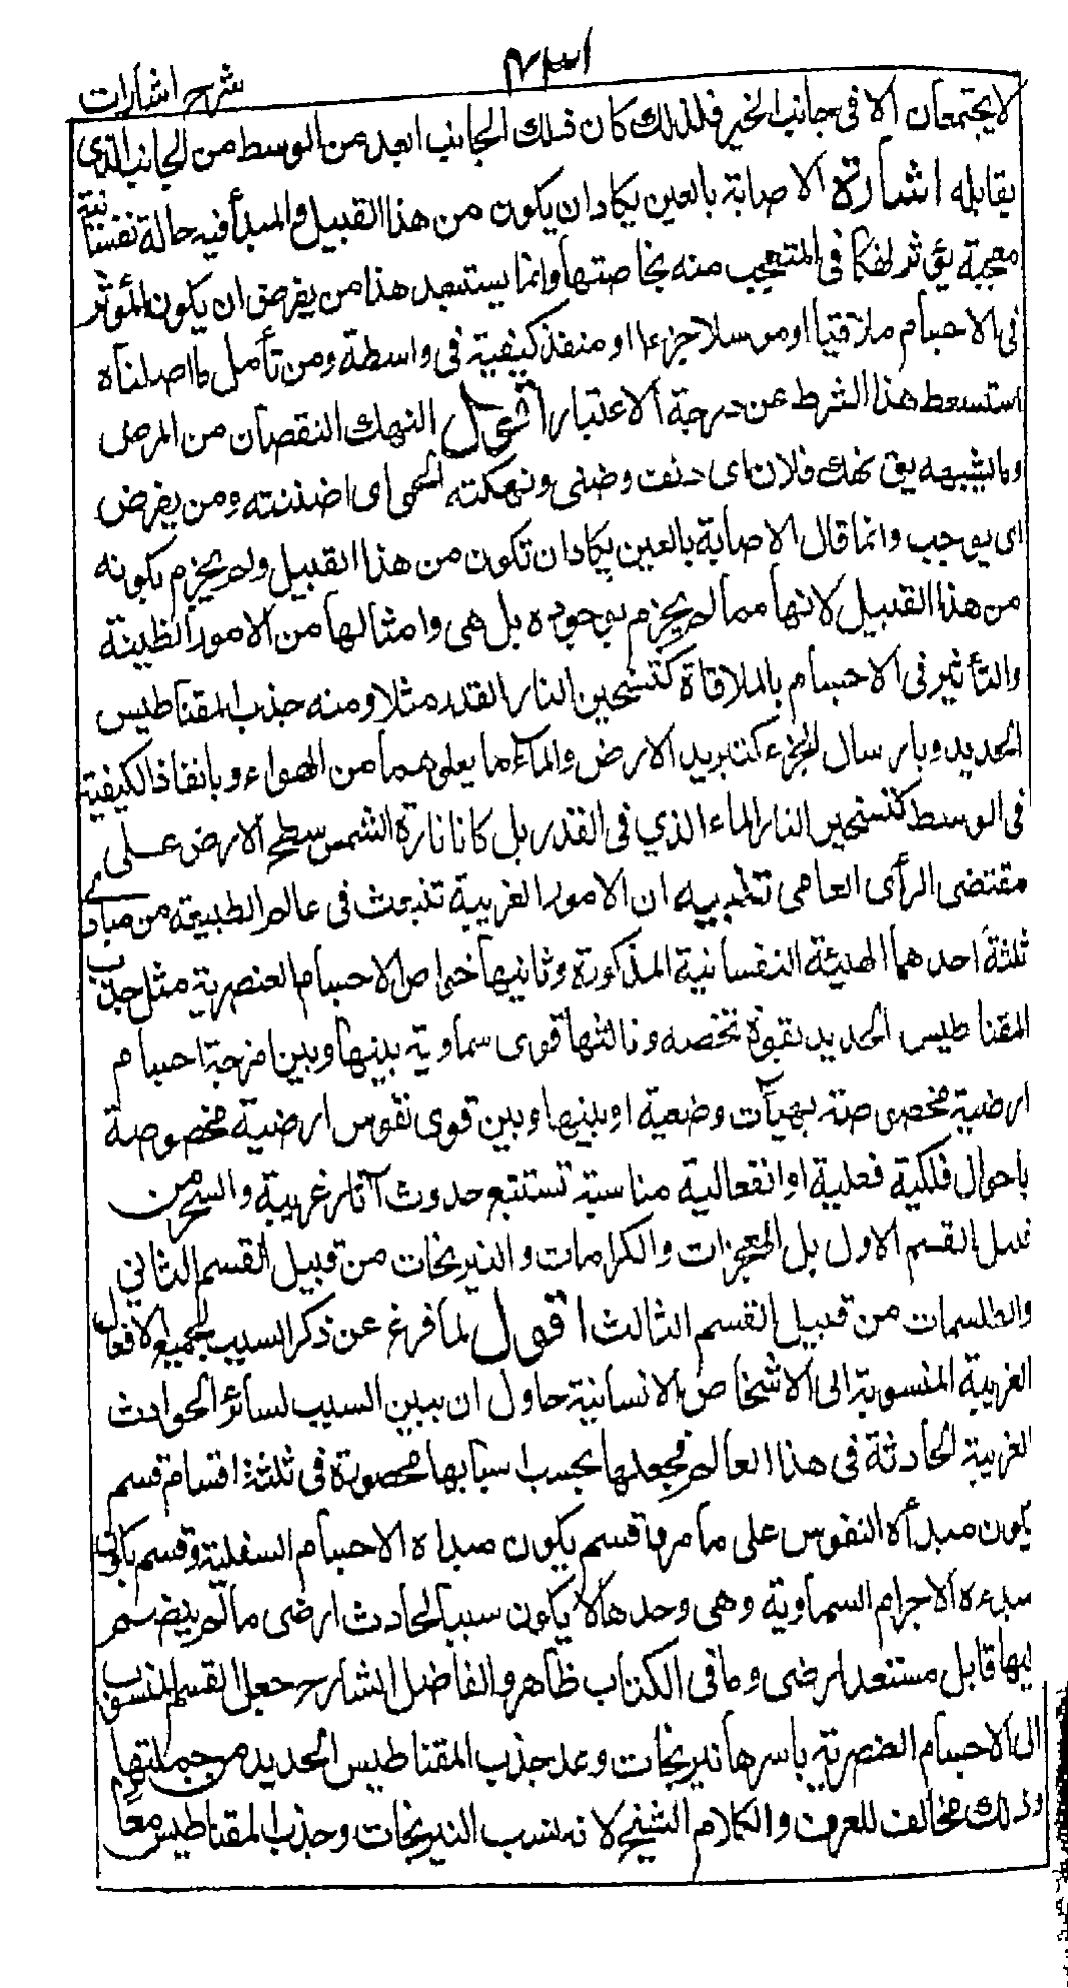 شرح اشارات
لا يجتمعان الا فى جانب الخير فلذلك كان ذلك الجانب ابعد من الوسط من الجانب الذى
يقابله اشارة الاصابة بالعين يكاد ان يكون من هذا القبيل والمبدأ فيه حالة نفسانية
معجبة يؤثر نهكا فى المتعجب منه بخاصتها وانما يستبعد هذا من يفرض ان يكون المؤثر
فى الاجسام ملاقيا او مرسلا جزءا او منفذ كيفية فى واسطة ومن تأمل ما اصلناه
استسقط هذا الشرط عن درجة الاعتبار اقول النهك النقصان من المرض
وما يشبهه يق نهك فلان اى دنف وضنى ونهكته الحمى اى اضننته ومن يفرض
اى يوجب وانما قال الاصابة بالعين يكاد ان تكون من هذا القبيل ولم يجزم بكونه
من هذا القبيل لانها مما لم يجزم بوجوده بل هى وامثالها من الامور الظنية
والتأثير فى الاجسام بالملاقاة كتسخين النار القدر مثلا ومنه جذب المقناطيس
الحديد وبارسال الجزء كتبريد الارض والماء ما يعلوهما من الهواء وبانفاذ الكيفية
فى الوسط كتسخين النار الماء الذي فى القدر بل كانارة الشمس سطح الارض على
مقتضى الرأى العامى تنبيه ان الامور الغريبة تنبعث فى عالم الطبيعة من مبادى
ثلثة احدهما الهيئة النفسانية المذكورة وثانيها خواص الاجسام العنصرية مثل جذب
المقناطيس الحديد بقوة تخصه وثالثها قوى سماوية بينها وبين امزجة اجسام
ارضية مخصوصة بهيآت وضعية او بينها وبين قوى نفوس ارضية مخصوصة
باحوال فلكية فعلية او انفعالية مناسبة تستتبع حدوث آثار غريبة والسحر من
قبيل القسم الاول بل المعجزات والكرامات والنيرنجات من قبيل القسم الثاني
والطلسمات من قبيل القسم الثالث اقول لما فرغ عن ذكر السبب لجميع الافعال
الغريبة المنسوبة الى الاشخاص الانسانية حاول ان يبين السبب لسائر الحوادث
الغريبة الحادثة فى هذا العالم فجعلها بحسب اسبابها محصورة فى ثلثة اقسام قسم
يكون مبدأه النفوس على ما مر وقسم يكون مبداه الاجسام السفلية وقسم يكون
مبدءه الاجرام السماوية وهى وحدها لا يكون سببا لحادث ارضى ما لم ينضم
اليها قابل مستعد ارضى وما فى الكتاب ظاهر والفاضل الشارح جعل القسم المنسوب
الى الاجسام العنصرية باسرها نيرنجات وعد جذب المقناطيس الحديد من جملتها
وذلك مخالف للعرف والكلام الشيخ لانه نسب النيرنجات وجذب المقناطيس معا